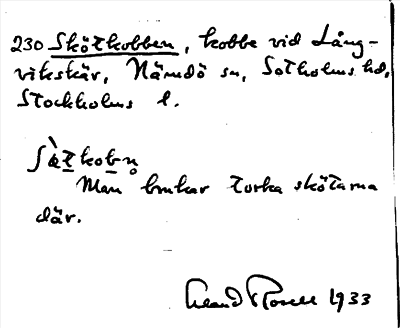 230 Skötkobben, kobbe vid Lång-
vikskär, Nämdö sn, Sotholms hd,
Stockholms l.
Man brukar torka skötarna
där.
1933